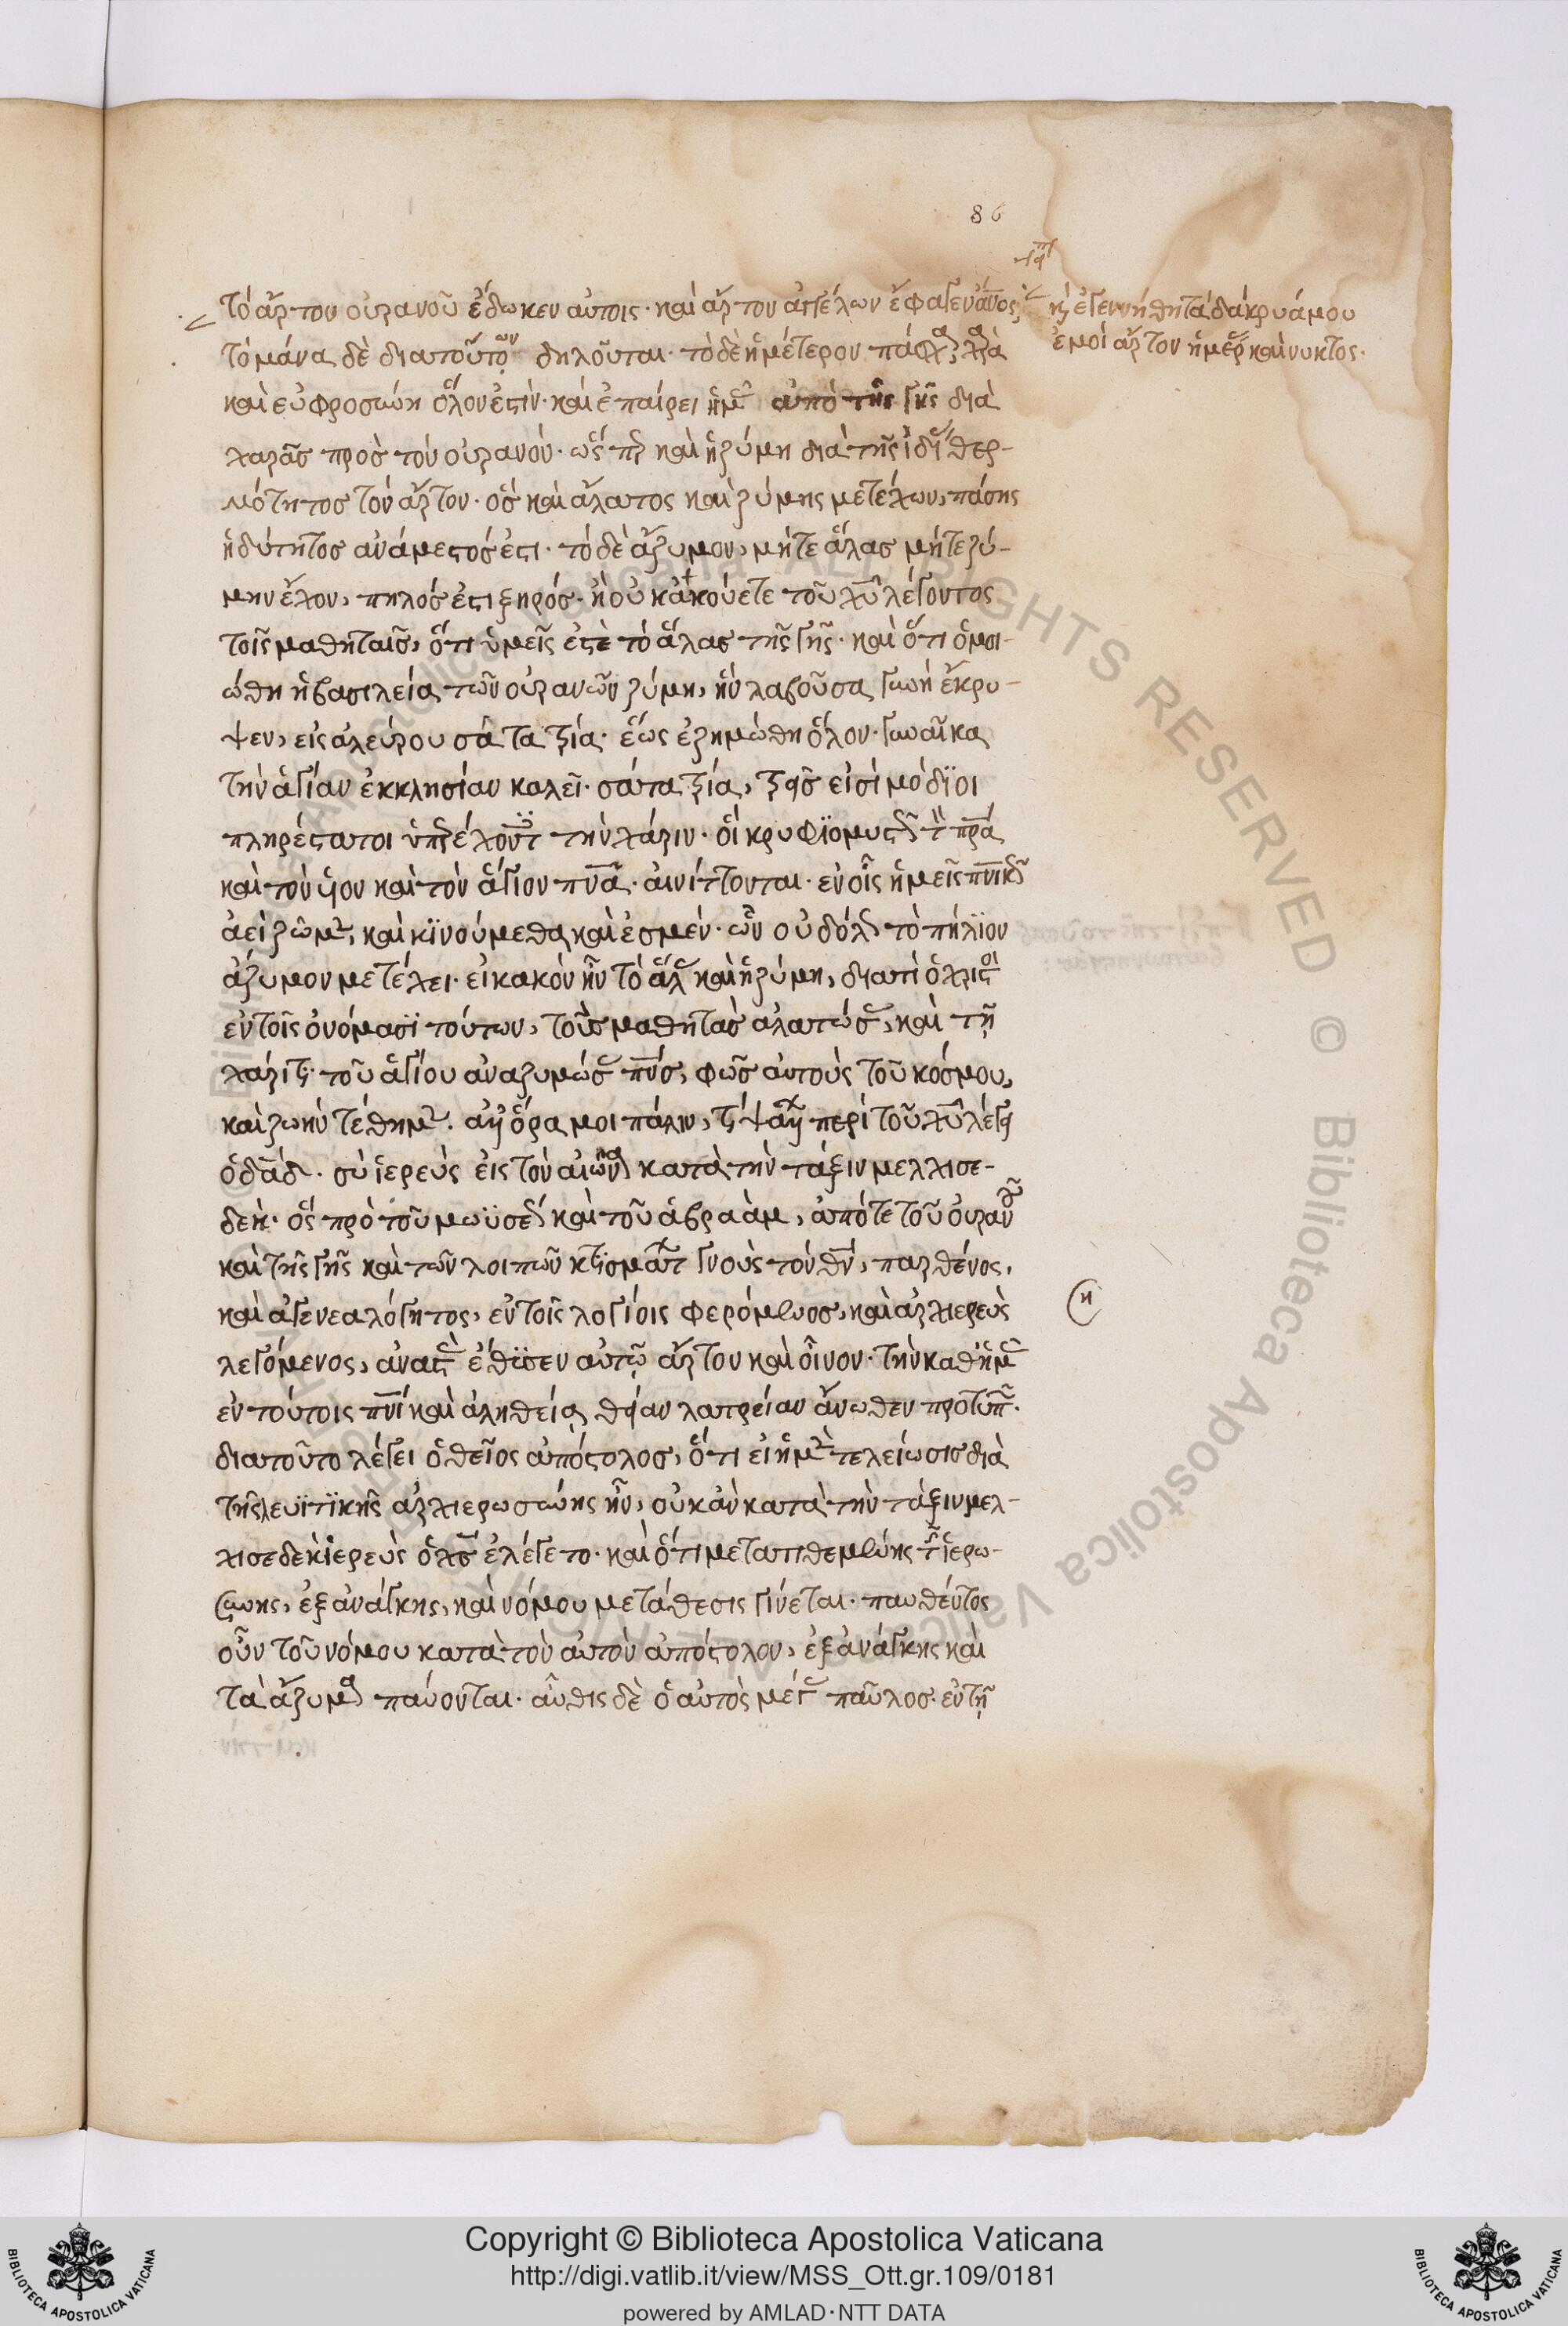 86
τὸ ἄρτον οὐρανοῦ ἔδωκεν αὐτοῖς· καὶ ἄρτον ἀγγέλων ἔφαγεν ἄνος·
κ, ἐγεννήθη τὰ δάκρυά μου
ἐμοὶ ἄρτον ἡμέρ καὶ νυκτός·
τὸ μάνα δὲ διὰ τούτων δηλοῦται· τὸ δὲ ἡμέτερον πάσχα, χαρὰ
καὶ εὐφροσύνη ὅλον ἐστίν· καὶ ἐπαίρει ἡμᾶς ἀπὸ τῆς γῆς διὰ
χαρᾶς πρὸς τὸν οὐρανόν· ὥσπερ καὶ ἡ ζύμη διὰ τῆς ἰδίας θερ-
μότητος τὸν ἄρτον· ὃς καὶ ἅλατος καὶ ζύμης μετέχων, πάσης
ἡδύτητος ἀνάμεστός ἐστι· τὸ δὲ ἄζυμον, μήτε ἅλας μήτε ζύ-
μην ἔχον, πηλός ἐστι ξηρός· ἢ οὐκ ἀκούετε τοῦ χυ λέγοντος
τοῖς μαθηταῖς, ὅτι ὑμεῖς ἐστὲ τὸ ἅλας τῆς γῆς· καὶ ὅτι ὁμοι-
ώθη ἡ βασιλεία τῶν οὐρανῶν ζύμη, ἣν λαβοῦσα γυνὴ ἔκρυ-
ψεν, εἰς ἀλεύρου σάτα τρία· ἕως ἐζημώθη ὅλον· γυναῖκα
τὴν ἁγίαν ἐκκλησίαν καλεῖ· σάτα τρία, τρεῖς εἰσὶ μόδϊοι
πληρέστατοι ὑπερέχοντ τὴν χάριν· οἱ κρυφϊομυστ τ πρα
καὶ τὸν υἱον καὶ τὸν ἅγιον πνα· αἰνίττονται· ἐν οἷς ἡμεῖς πνικ
ἀεὶ ζῶμεν, καὶ κϊνούμεθα καὶ ἐσμέν· ὧν οὐδόλως τὸ πήλϊον
ἄζυμον μετέχει· εἰ κακὸν ἦν τὸ ἅλας καὶ ἡ ζύμη, διατί ὁ χριστὸ
ἐν τοῖς ὀνόμασϊ τούτων, τοὺς μαθητὰς ἁλατώσας, καὶ τῇ
χάριτι τοῦ ἁγίου ἀναζυμώσας πνς, φῶς αὐτοὺς τοῦ κόσμου,
καὶ ζωὴν τέθημεν. ὅρα μοι πάλιν, περὶ τοῦ χυ λέγει
ὁ δαδ. σὺ ἱερεὺς εἰς τὸν αἰῶνα κατὰ τὴν τάξιν μελχισε-
δέκ· ὃς πρὸ τοῦ μωϋσέως καὶ τοῦ ἀβραὰμ, ἀπό τε τοῦ οὐρανοῦ
καὶ τῆς γῆς καὶ τῶν λοιπῶν κτϊσμάτ γνοὺς τὸν θν, παρθένος,
καὶ ἀγενεαλόγητος, ἐν τοῖς λογίοις φερόμενος, καὶ ἀρχιερεὺς
η
λεγόμενος, ἀναστὰς ἔθϋσεν αὐτῷ ἄρτον καὶ οἶνον· τὴν καθ ἡμᾶς
ἐν τούτοις πνι καὶ ἀληθείᾳ θείαν λατρείαν ἄνωθεν προτυπ·
διὰ τοῦτο λέγει ὁ θεῖος ἀπόστολος, ὅτι εἰ ἡ μὲν τελείωσις διὰ
τῆς λευϊτϊκῆς ἀρχιερωσύνης ἦν, οὐκ ἂν κατὰ τὴν τάξιν μελ-
χισεδὲκ ἱερεὺς ὁ χς ἐλέγετο· καὶ ὅτι μετατιθεμένης τῆς ἱερω-
σύνης, ἐξ ἀνάγκης, καὶ νόμου μετάθεσις γίνεται· παυθέντος
οὖν τοῦ νόμου κατὰ τὸν αὐτὸν ἀπόστολον, ἐξ ἀνάγκης καὶ
τὰ ἄζυμα παύονται· αὖθις δὲ ὁ αὐτὸς μέγας παῦλος· ἐν τῇ
Copyright © Biblioteca Apostolica Vaticana
http://digi.vatlib.it/view/MSS_Ott.gr.109/0181
powered by AMLAD·NTT DATA
BIBLIOTECA APOSTOLICA VATICANA
BIBLIOTECA APOSTOLICA VATICANA